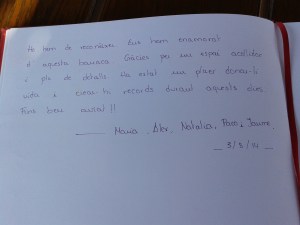 Ho hem de reconèixer. Ens hem enamorat
d'aquesta barraca. Gràcies per un espai acollidor
i ple de detalls. Ha estat un plaer donar-li
vida i crear-hi records durant aquests dies.
Fins ben aviat!!
Maria, Àlex, Natalia, Pass i Jaume.
_ 3/8/14 _